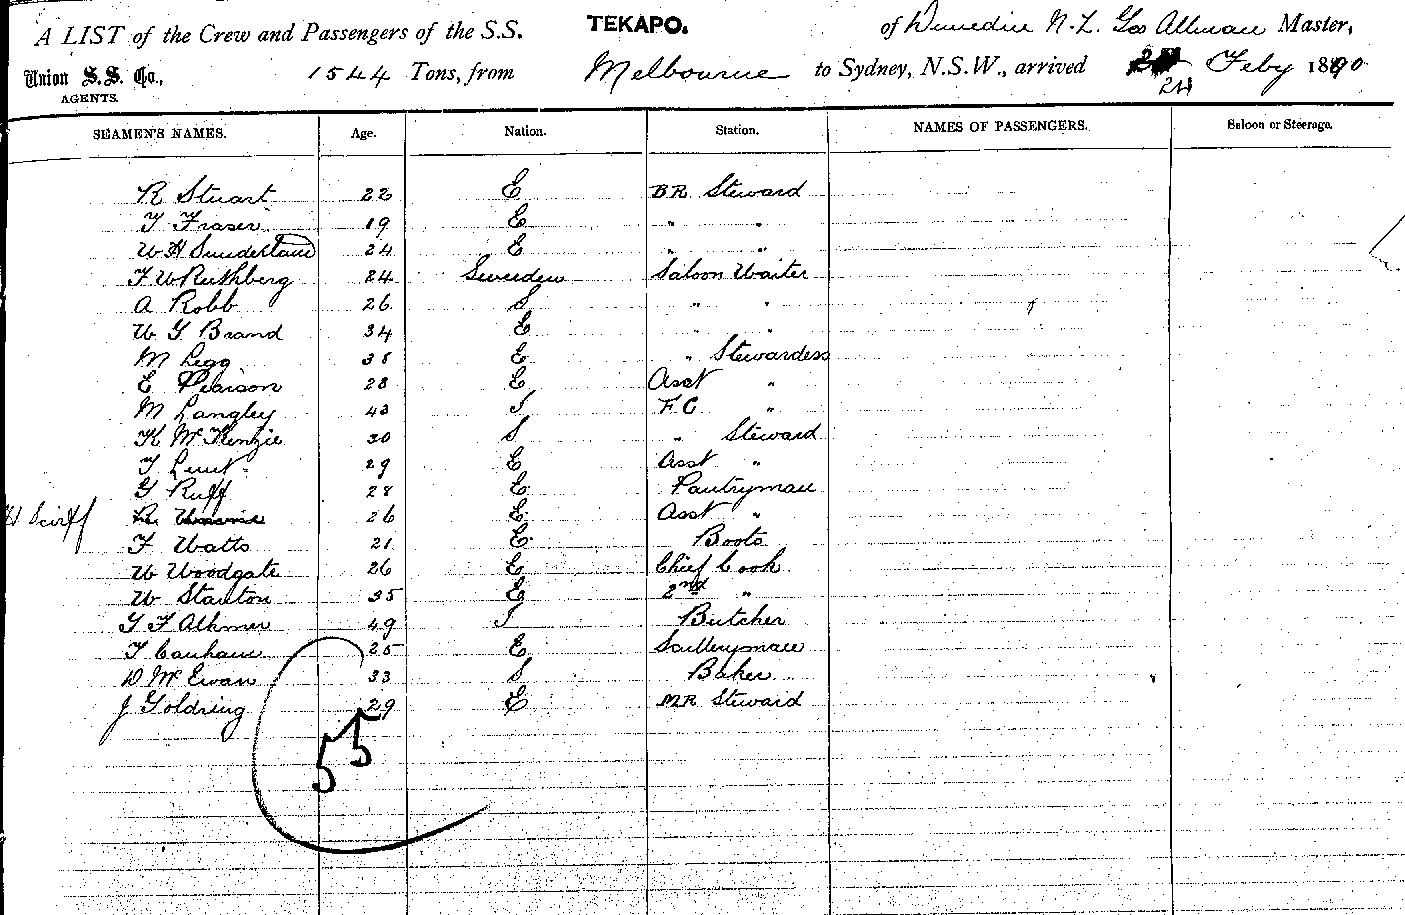 A LIST of the Crew and Passengers of the S.S. TEKAPO. of Dunedin N.Z. Geo Allman Master,
Union S.S. Co., AGENTS. 1544 Tons, from Melbourne to Sydney, N.S.W., arrived 24 Feby 1890
SEAMEN'S NAMES. Age. Nation. Station. NAMES OF PASSENGERS. Saloon or Steerage.
R Stuart 22 E BR Steward
T Fraser 19 E " "
W H Sunderland 24 E " "
F W Ruthberg 24 Sweeden Saloon Waiter
A Robb 26 S " "
W G Brand 34 E " "
M Legg 38 E " Stewardess
E Pearson 28 E Asst "
M Langley 43 I F.C "
K McKenzie 30 S " Steward
T 29 E Asst "
G Ruff 28 E Pantryman
H 26 E Asst "
F Watts 21 E Boots
W Woodgate 26 E Chief Cook
W Stanton 35 E 2nd "
49 I Butcher
T Canham 25 E Scullerymann
D McEwan 33 S Baker
J Goldring 29 E MR Steward
55